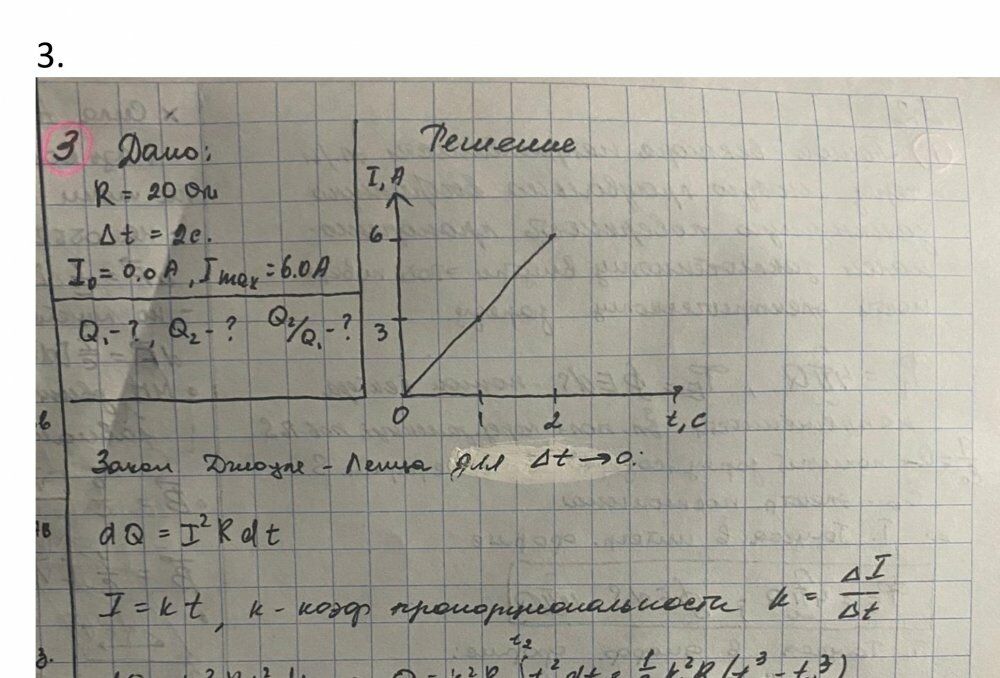 3.
3 Дано:
R = 20 Ом
Δt = 2с.
I₀ = 0.0 А, I max = 6.0 А
Q₁ - ?, Q₂ - ? Q₂/Q₁ - ?
Решение
I, А
6
3
0 1 2 t, с
Закон Джоуля - Ленца для Δt → 0:
dQ = I² R dt
I = kt, k - коэф пропорциональности k = ΔI/Δt